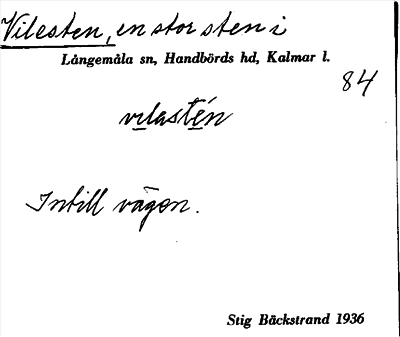 Vilesten, en stor sten i
Långemåla sn, Handbörds hd, Kalmar l.
84
vilastén
Intill vägen.
Stig Bäckstrand 1936